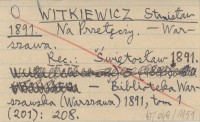 O WITKIEWICZ Stanisław
1891. Na Przełęczy. — War-
szawa.
Rec.: Świętosław 1891.
— Biblioteka War-
szawska (Warszawa) 1891, tom 1
(201): 208.